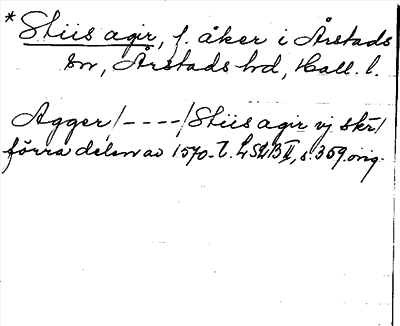 * Stiis agir, f. åker i Årstads
sn, Årstads hd, Hall. l.
Agger /----/ Stiis agir vj skr/
förra delen av 1570-t. LSLB II, s. 359. orig.